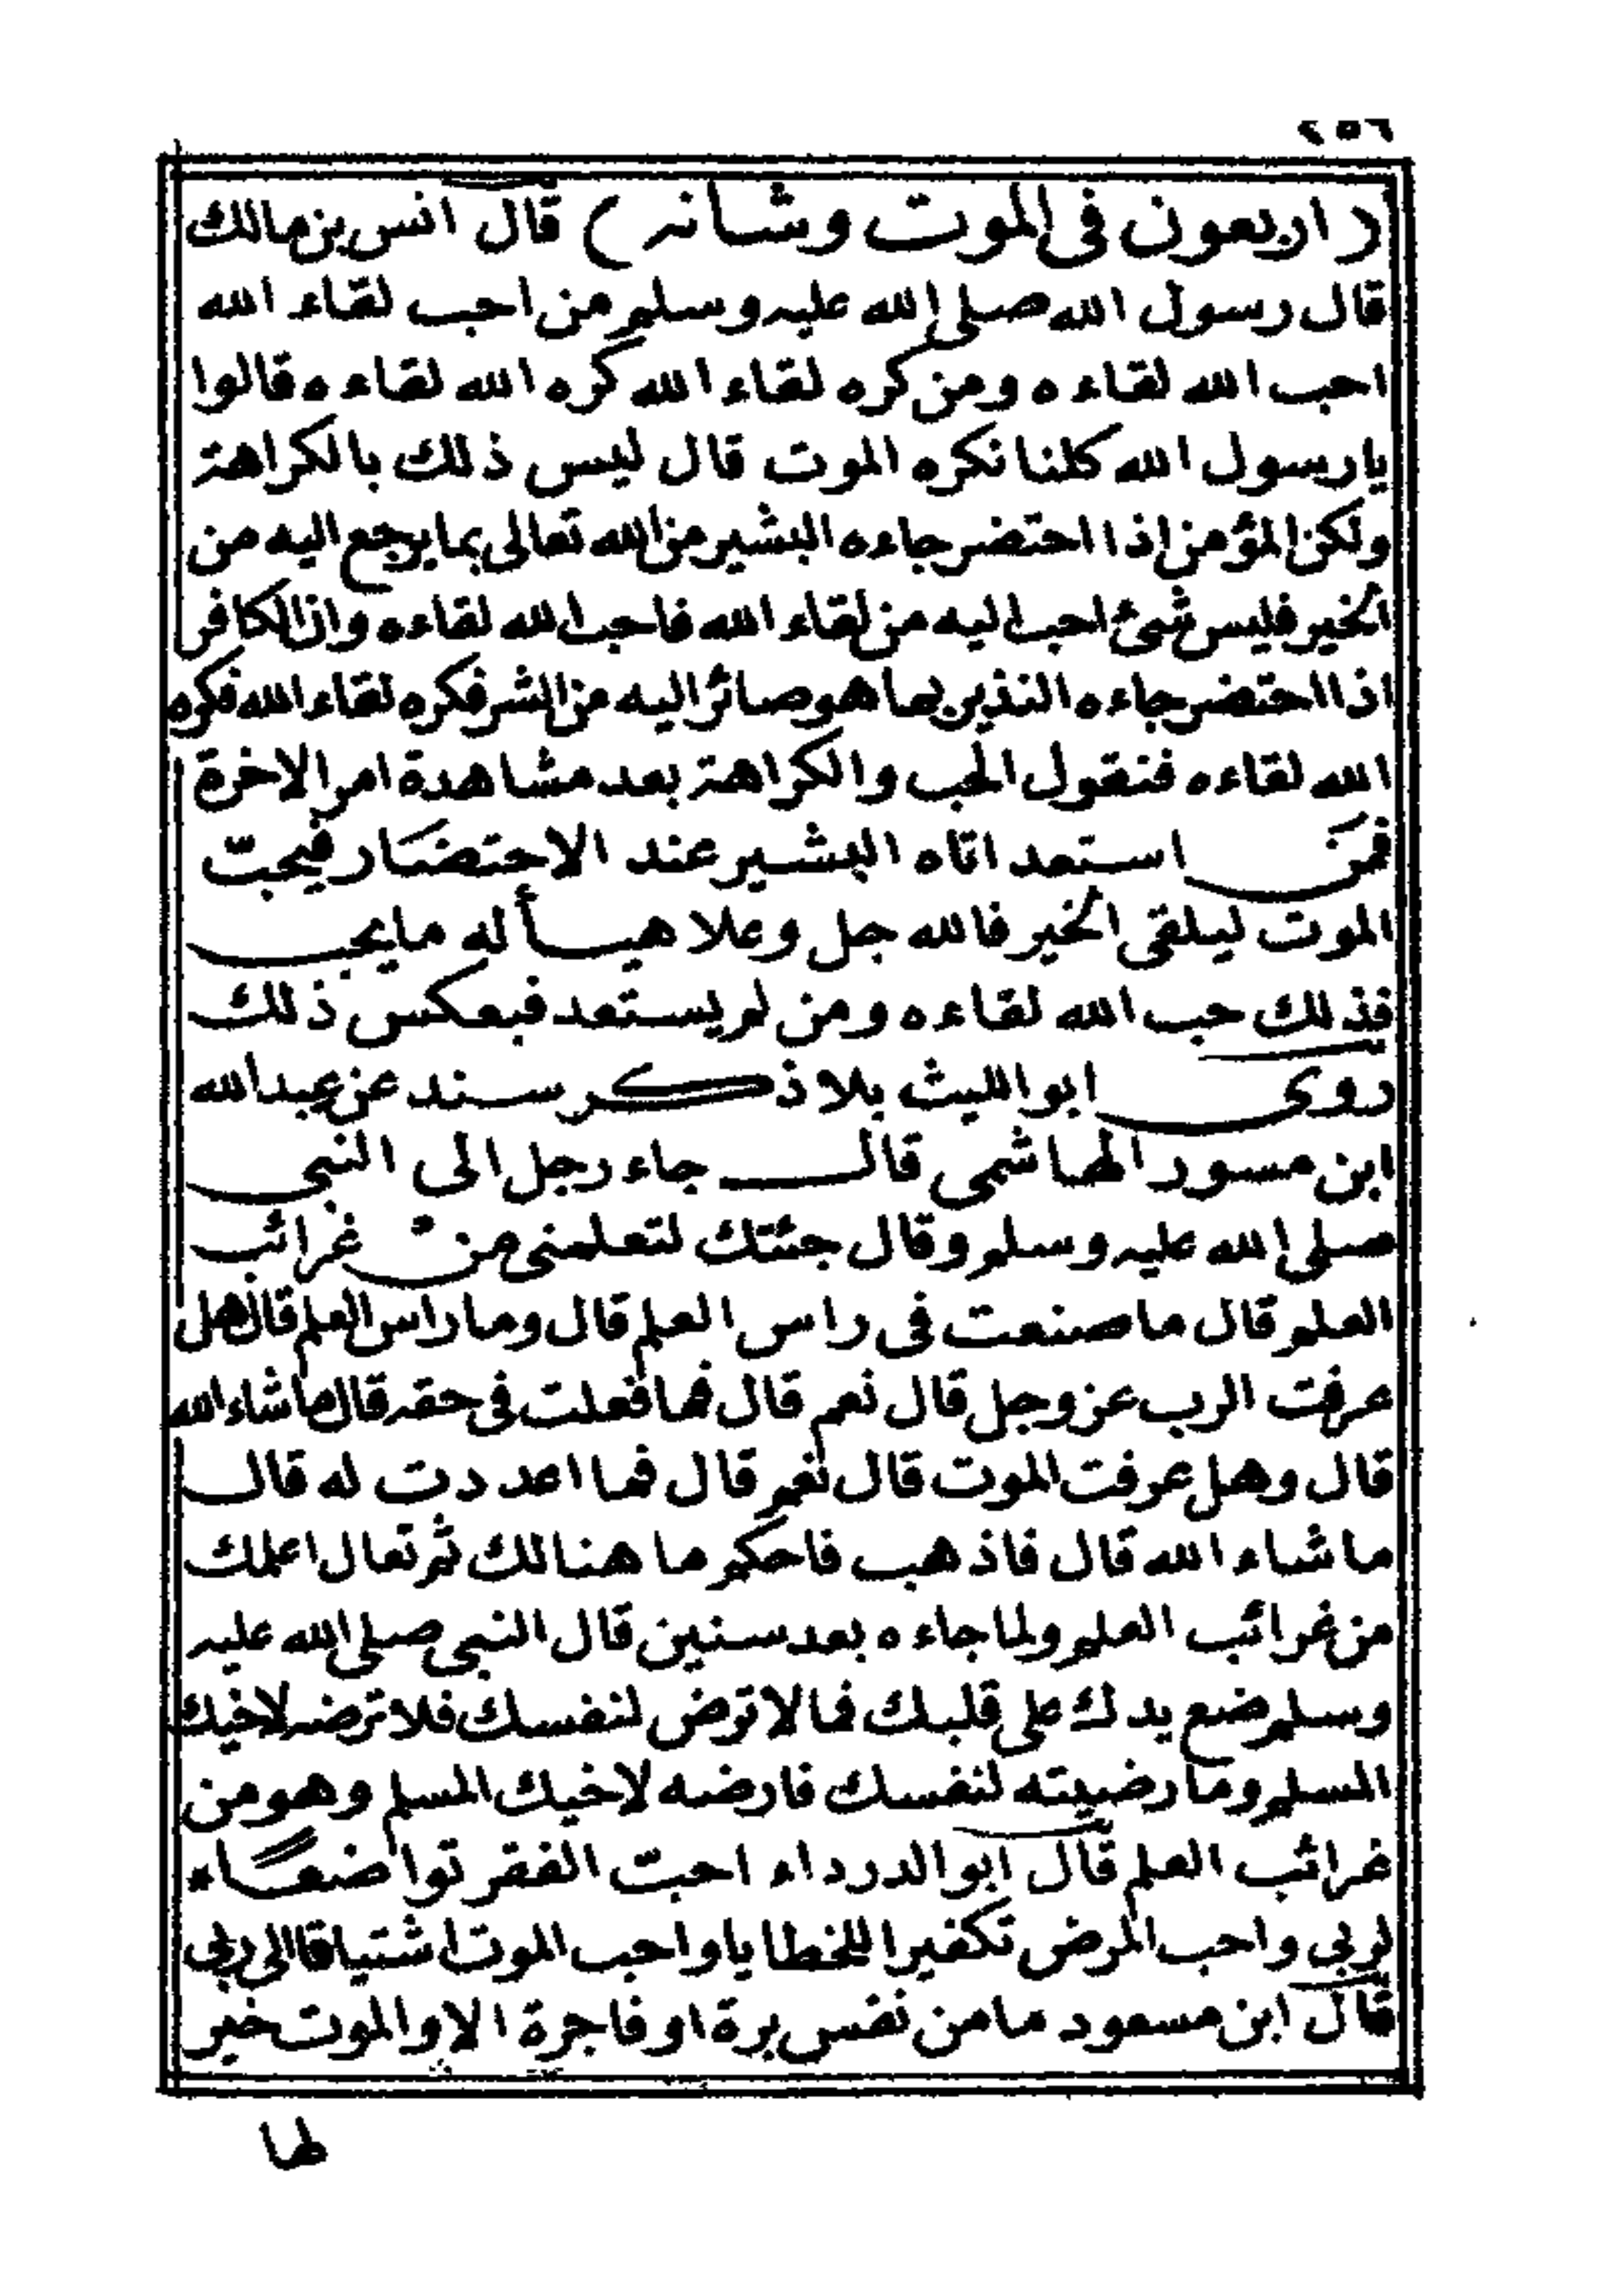 ٢٥٦
( اربعون فى الموت وشانه ) قال انس بن مالك
قال رسول الله صلى الله عليه وسلم من احب لقاء الله
احب الله لقاءه ومن كره لقاء الله كره الله لقاءه قالوا
يارسول الله كلنا نكره الموت قال ليس ذلك بالكراهة
ولكن المؤمن اذا احتضر جاءه البشير من الله تعالى بما يرجع اليه من
الخير فليس شئ احب اليه من لقاء الله فاحب الله لقاءه وان الكافر
اذا احتضر جاءه النذير بما هو صائر اليه من الشر فكره لقاء الله فكره
الله لقاءه فنقول الحب والكراهة بعد مشاهدة امر الاخرة
فمن استعد اتاه البشير عند الاحتضار فيحبّ
الموت ليلقى الخير فالله جل وعلا هيأ له ما يحب
فذلك حب الله لقاءه ومن لم يستعد فبعكس ذلك
روى ابو الليث بلا ذكر سند عن عبد الله
ابن مسور الهاشمى قال جاء رجل الى النبى
صلى الله عليه وسلم وقال جئتك لتعلمنى من غرائب
العلم قال ما صنعت فى راس العلم قال وما راس العلم قال هل
عرفت الرب عز وجل قال نعم قال فما فعلت فى حقه قال ما شاء الله
قال وهل عرفت الموت قال نعم قال فما اعددت له قال
ما شاء الله قال فاذهب فاحكم ما هنالك ثم تعال اعلمك
من غرائب العلم ولما جاءه بعد سنين قال النبى صلى الله عليه
وسلم ضع يدك على قلبك فما لا ترض لنفسك فلا ترضه لاخيك
المسلم وما رضيته لنفسك فارضه لاخيك المسلم وهو من
غرائب العلم قال ابو الدرداء احبّ الفقر تواضعاء
لربى واحب المرض تكفيرا للخطايا واحب الموت اشتياقا الى ربى
قال ابن مسعود ما من نفس برة او فاجرة الا والموت خير
لها